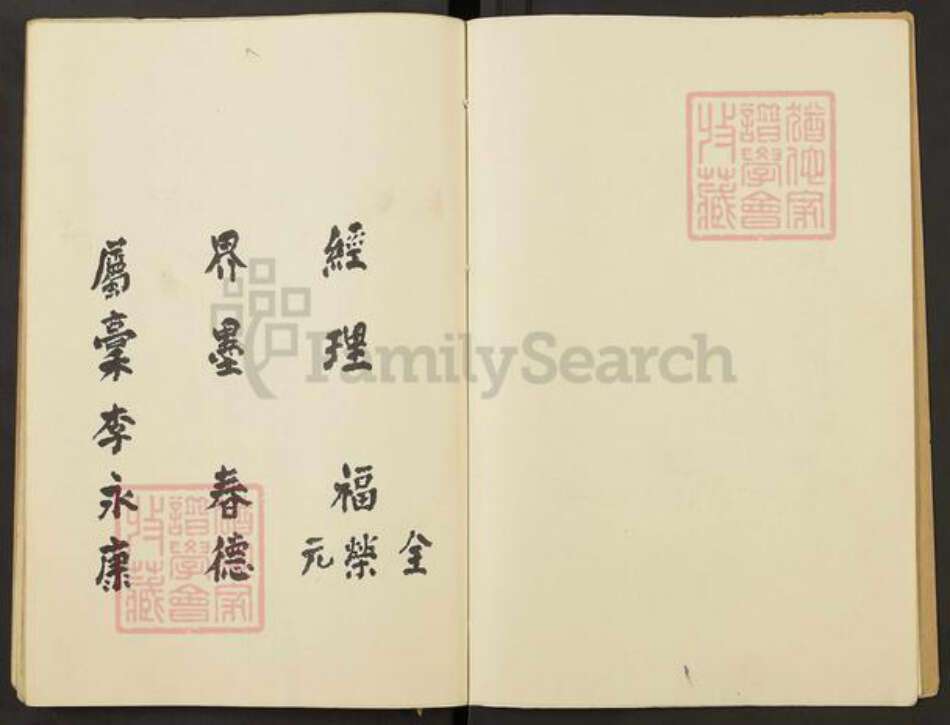 經理 福全榮元
界墨 春德
屬稾 李永康
猶他家譜學會收藏
猶他家譜學會收藏
FamilySearch